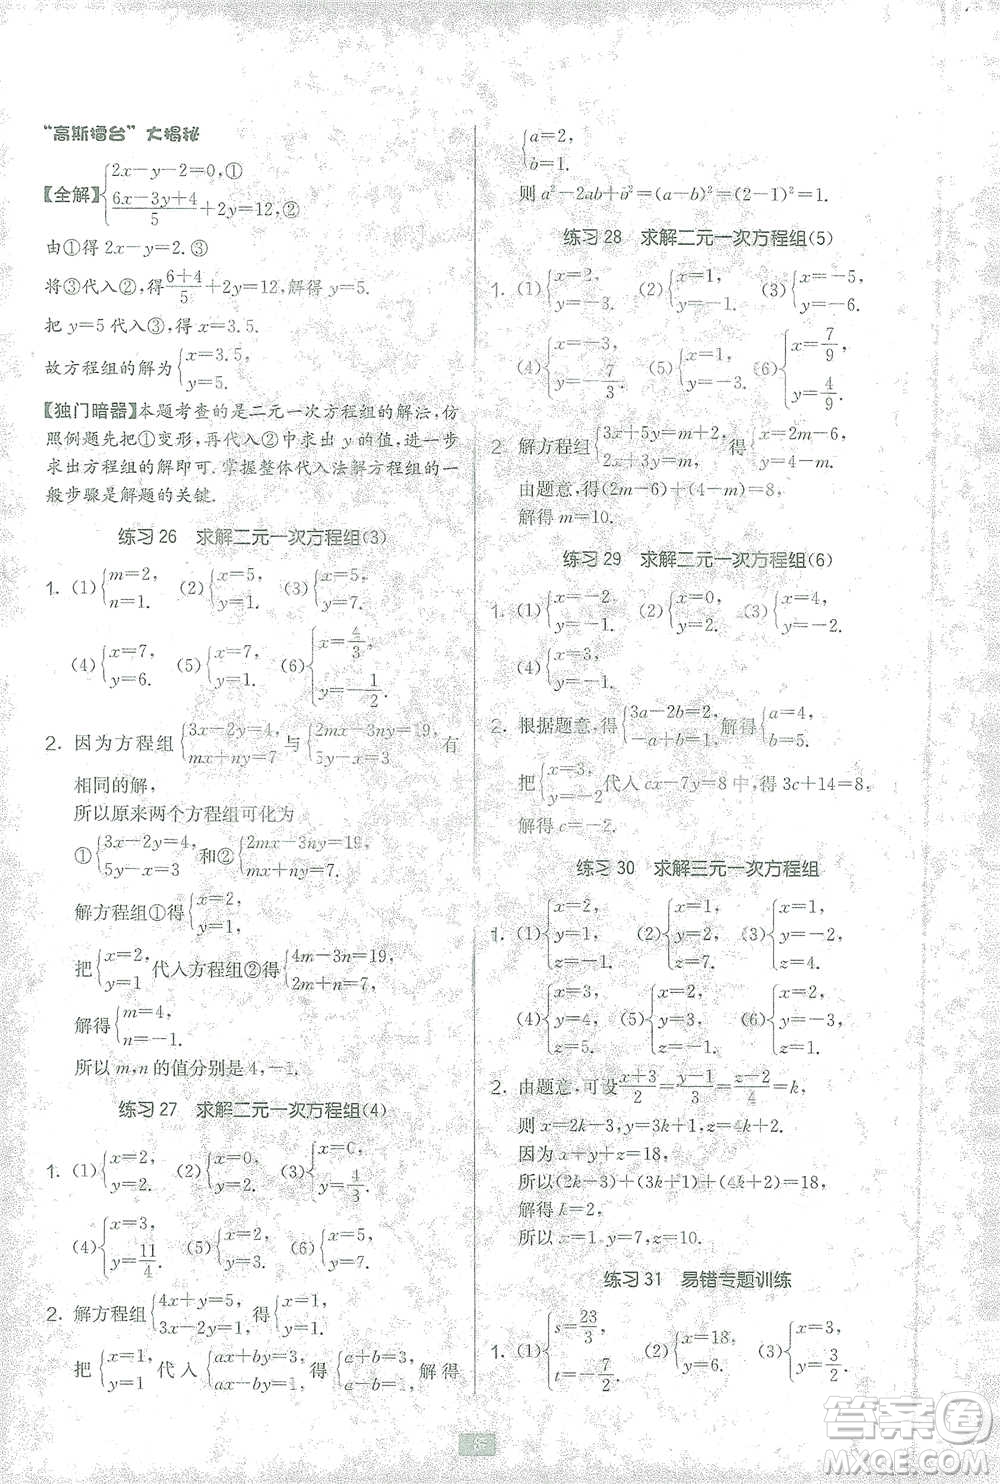 “高斯擂台”大揭秘
【全解】{2x－y－2=0,①
(6x－3y+4)/5+2y=12,②
由①得 2x－y=2.③
将③代入②,得(6+4)/5+2y=12,解得 y=5.
把 y=5 代入③,得 x=3.5.
故方程组的解为{x=3.5, y=5.
【独门暗器】本题考查的是二元一次方程组的解法,仿
照例题先把①变形,再代入②中求出 y 的值,进一步
求出方程组的解即可.掌握整体代入法解方程组的一
般步骤是解题的关键.
练习 26 求解二元一次方程组(3)
1. (1){m=2, n=1. (2){x=5, y=1. (3){x=5, y=7.
(4){x=7, y=6. (5){x=7, y=1. (6){x=4/3, y=－1/2.
2. 因为方程组{3x－2y=4, mx+ny=7 与{2mx－3ny=19, 5y－x=3 有
相同的解,
所以原来两个方程组可化为
①{3x－2y=4, 5y－x=3 和②{2mx－3ny=19, mx+ny=7.
解方程组①得{x=2, y=1.
把{x=2, y=1 代入方程组②得{4m－3n=19, 2m+n=7.
解得{m=4, n=－1.
所以 m,n 的值分别是 4,－1.
练习 27 求解二元一次方程组(4)
1. (1){x=2, y=2. (2){x=2, y=1. (3){x=0, y=4/3.
(4){x=3, y=11/4. (5){x=2, y=3. (6){x=5, y=7.
2. 解方程组{4x+y=5, 3x－2y=1, 得{x=1, y=1.
把{x=1, y=1 代入{ax+by=3, ax－by=1, 得{a+b=3, a－b=1. 解得
{a=2, b=1.
则 a²－2ab+b²=(a－b)²=(2－1)²=1.
练习 28 求解二元一次方程组(5)
1. (1){x=2, y=－3. (2){x=1, y=－1. (3){x=－5, y=－6.
(4){x=－3, y=－7/3. (5){x=2, y=1. (6){x=7/9, y=4/9.
2. 解方程组{3x+5y=m+2, 2x+3y=m, 得{x=2m－6, y=4－m.
由题意,得(2m－6)+(4－m)=8,
解得 m=10.
练习 29 求解二元一次方程组(6)
1. (1){x=－2, y=－1. (2){x=0, y=－2. (3){x=4, y=1.
(4){x=3, y=－1.
2. 根据题意,得{3a－2b=2, －a+b=1. 解得{a=4, b=5.
把{x=3, y=－2 代入 cx－7y=8 中,得 3c+14=8,
解得 c=－2.
练习 30 求解三元一次方程组
1. (1){x=2, y=1, z=－1. (2){x=1, y=4, z=7. (3){x=1, y=－2, z=4.
(4){x=3, y=4, z=5. (5){x=3, y=1, z=－1. (6){x=2, y=－3, z=1.
2. 由题意,可设(x+3)/2=(y－1)/3=(z－2)/4=k,
则 x=2k－3,y=3k+1,z=4k+2.
因为 x+y+z=18,
所以(2k－3)+(3k+1)+(4k+2)=18,
解得 k=2,
所以 x=1,y=7,z=10.
练习 31 易错专题训练
1. (1){s=23/3, t=－7/2. (2){x=18, y=6. (3){x=3, y=3/2.
答案卷
MXQE.COM